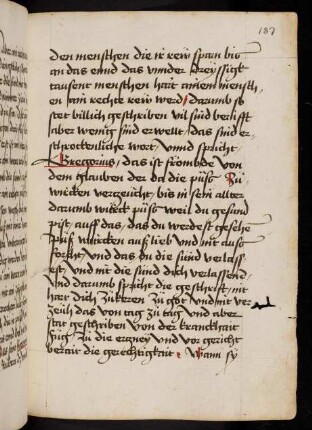 187
den menschen die ir rew sparn bis
an das ennd das vnnder dreyssigk
tausent menschen hart ainem mensch
en sein rechte rew werd / darumb so
stet billich geschriben vil sind berüfft
aber wenig sind erwelt / das sind er
schrockenliche wort / vnnd spricht
Gregorius / das ist frömbde von
dem glauben der da die puss zü
würcken verzeücht / bis in sein allter
darumb würck puss weil du gesund
pist / auff das / das du werdest gesehen
puss würcken aus lieb vnd nit aus
forcht / vnd das du die sünd verlass
est / vnd nit die sünd dich verlassend
vnd darumb spricht die geschrifft / nit
harr dich zükeren zü got vnd nit ver
zeüh das von tag zü tag vnd aber
stat geschriben von der kranckhait
füg zü die ertzney vnd vor gericht
berait die gerechtigkait / Wann sy